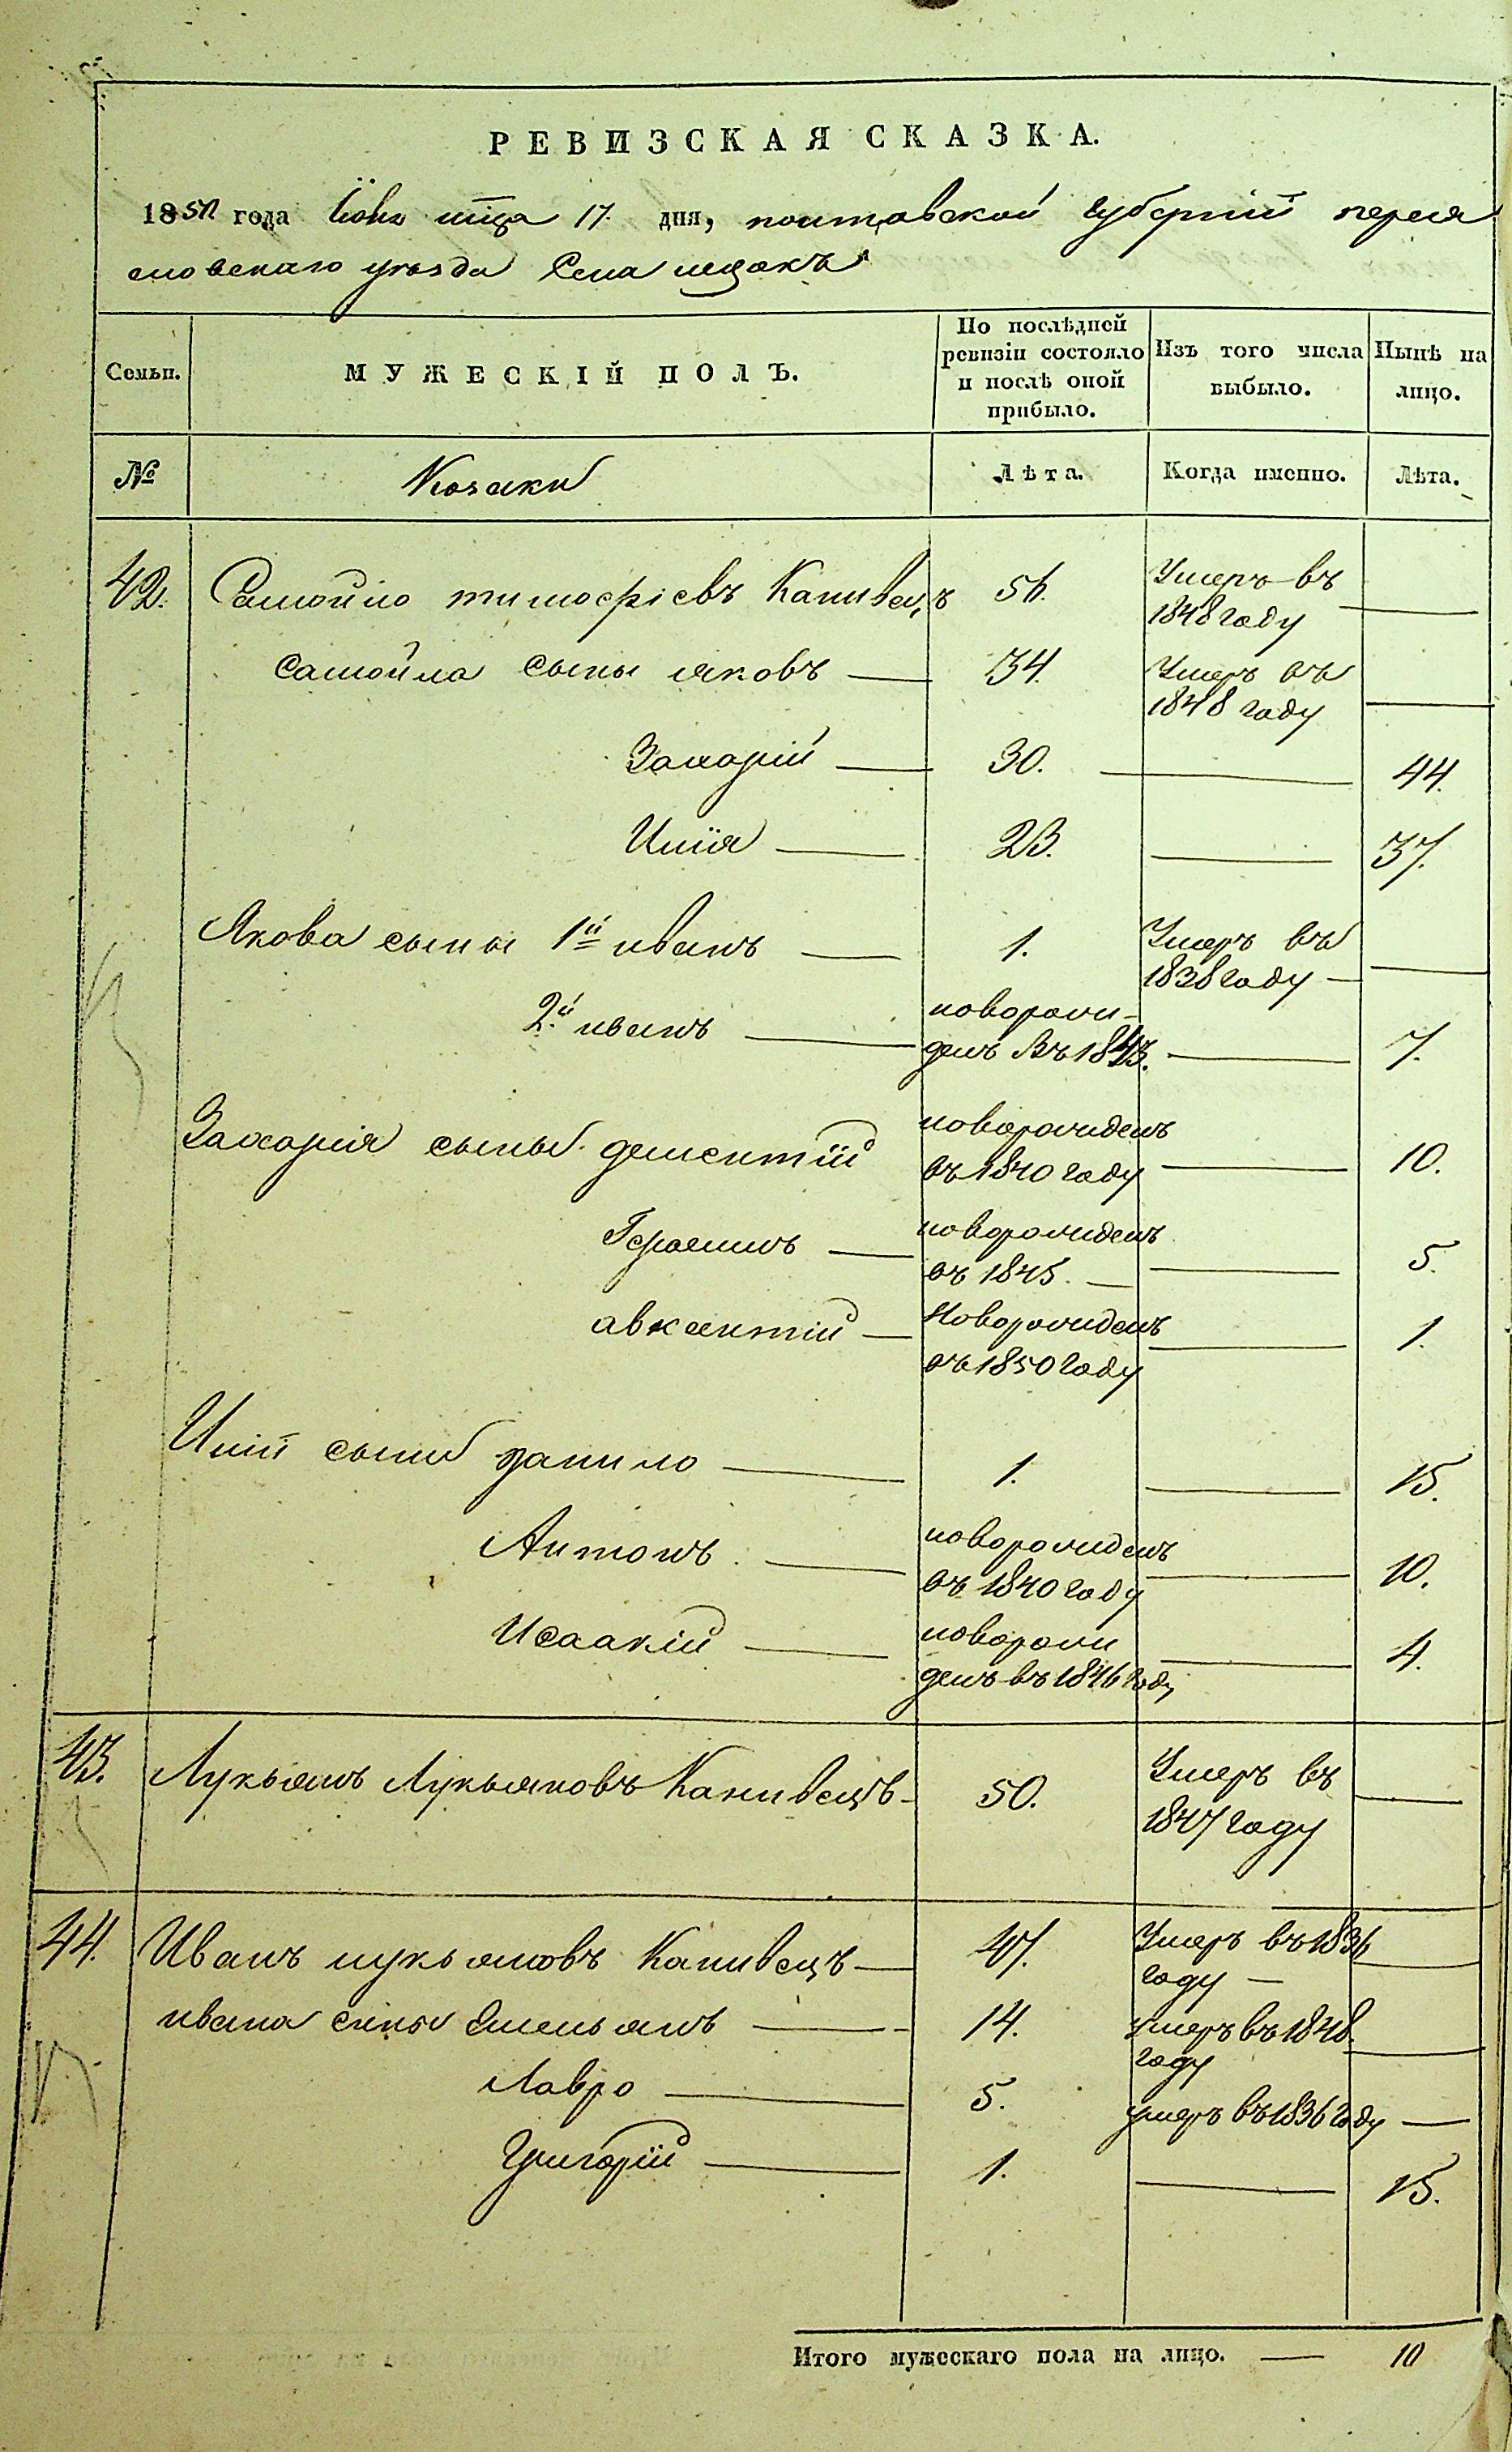 РЕВИЗСКАЯ СКАЗКА.
1850 года Іюня мца 17. дня, полтавской губерніи переяс
ловскаго уезда Села
Семьи.
МУЖЕСКІЙ ПОЛЪ.
По послѣдней
ревизіи состояло
и послѣ оной
прибыло.
Изъ того числа
выбыло.
Нынѣ на
лицо.
№
Козаки
Лѣта.
Когда именно.
Лѣта.
42. Самойло тимофіевъ Канивецъ 56. Умеръ въ
1848 году —
Самойла сыны яковъ — 34. Умеръ въ
1848 году —
Захарій — 30. — 44.
Илія — 23. — 37.
Якова сыны 1й иванъ — 1. Умеръ въ
1838 году —
2й иванъ — новорож-
денъ въ 1843. — 7.
Захарія сыны дементій новорожденъ
въ 1840 году — 10.
Герасимъ — новорожденъ
въ 1845. — 5.
авксентій — Новорожденъ
въ 1850 году — 1.
Иліи сыны данило — 1. — 15.
Антонъ — новорожденъ
въ 1840 году — 10.
Исаакій — новорож
денъ въ 1846 году — 4.
43. Лукьянъ Лукьяновъ Канивецъ — 50. Умеръ въ
1847 году —
44. Иванъ лукьяновъ Канивецъ — 47. Умеръ въ 1836
году —
ивана сыны Емельянъ — 14. умеръ въ 1848.
году —
Лавро — 5. умеръ въ 1836 году —
Григорій — 1. — 15.
Итого мужескаго пола на лицо. — 10